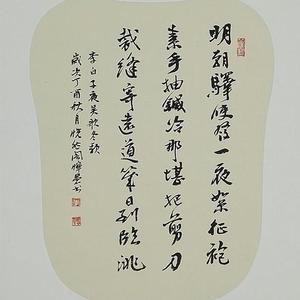 明朝驛使發一夜絮征袍
素手抽鍼冷那堪把剪刀
裁縫寄遠道幾日到臨洮
李白子夜吳歌冬歌
歲次丁酉秋月